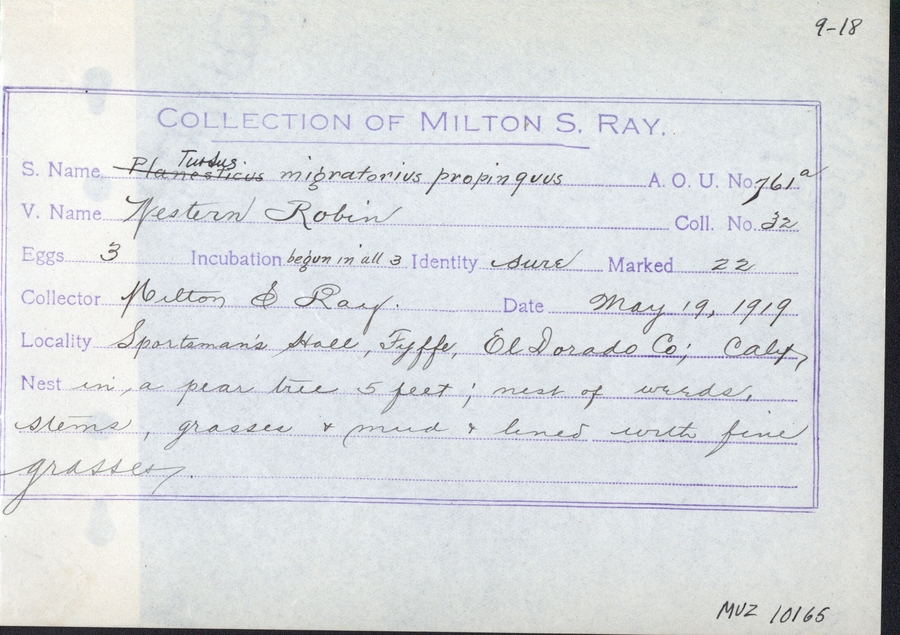 9-18
COLLECTION OF MILTON S. RAY.
Turdus
S. Name Planesticus migratorius propinquus A. O. U. No. 761a
V. Name Western Robin Coll. No. 32
Eggs 3 Incubation begun in all 3 Identity sure Marked 22
Collector Milton S Ray. Date May 19, 1919
Locality Sportsman's Hall, Fyffe, El Dorado Co; Calif,
Nest in a pear tree 5 feet; nest of weeds,
stems, grasses & mud & lined with fine
grasses.
MVZ 10165